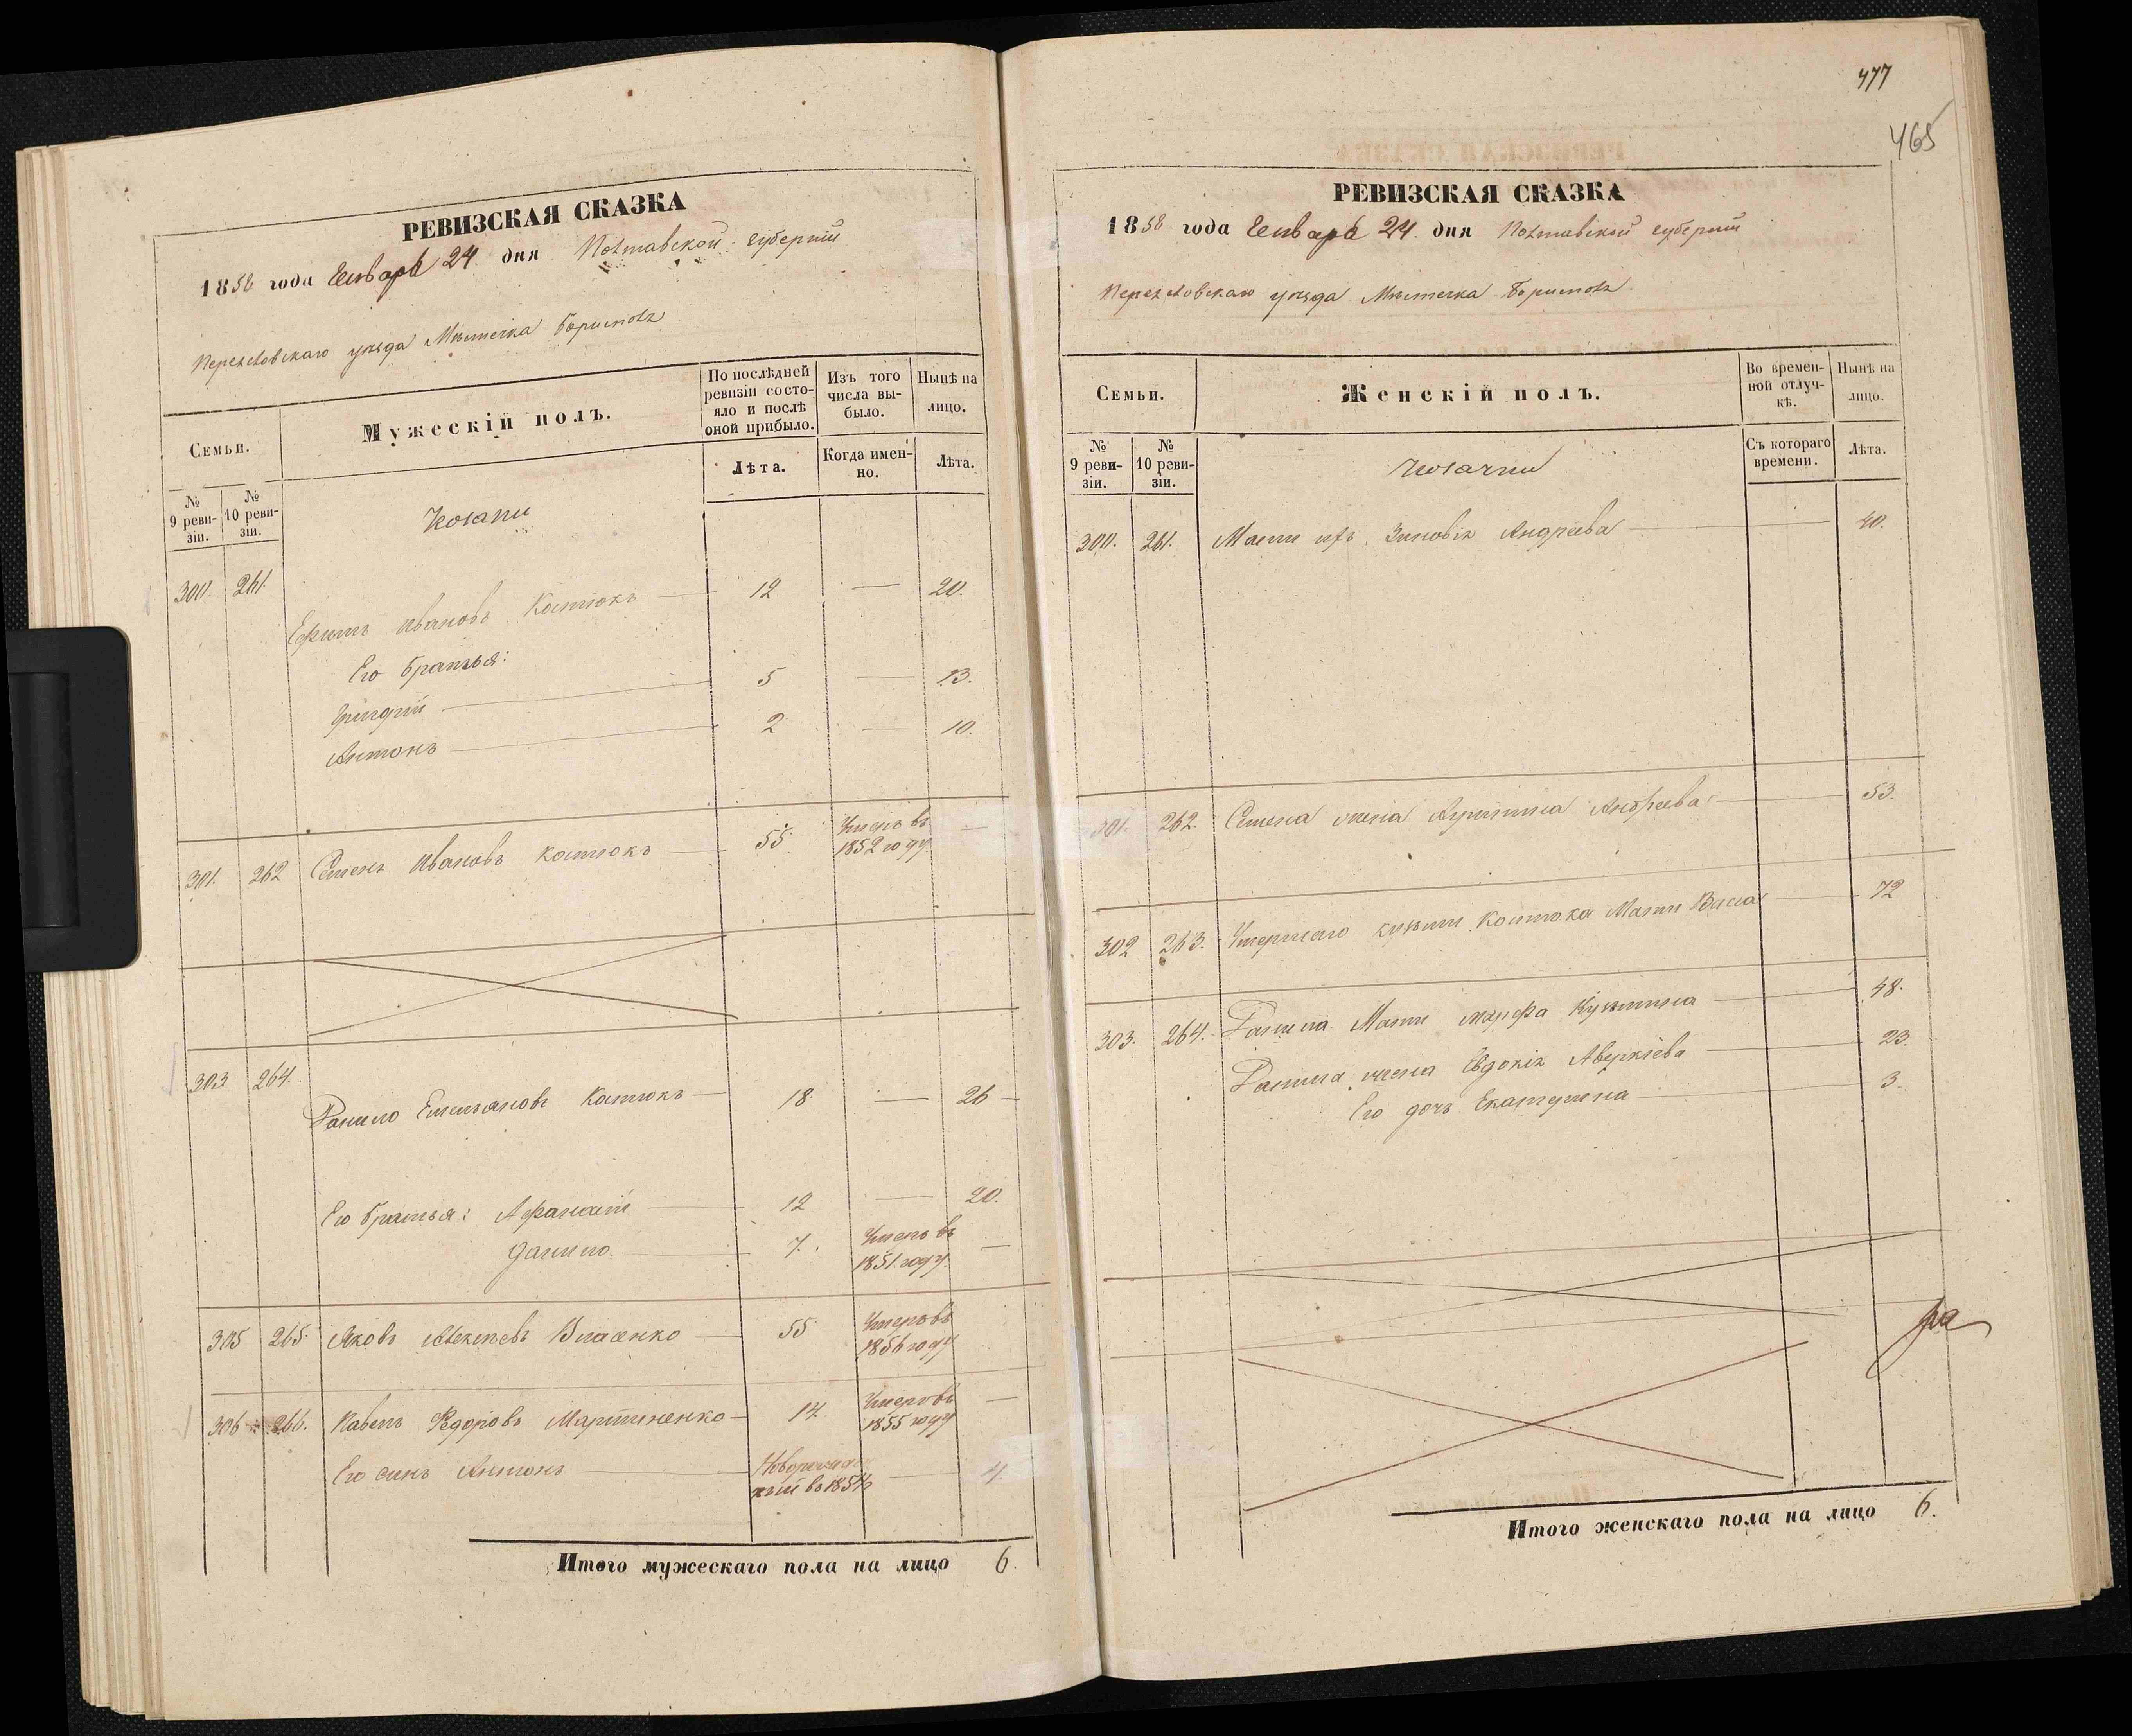 РЕВИЗСКАЯ СКАЗКА
1858 года Генваря 24 дня Полтавской губернии
Переяславскаго уезда Местечка Борисполя
Семьи.
Мужескій полъ.
По послѣдней ревизіи состо-
яло и послѣ
оной прибыло.
Изъ того
числа вы-
было.
Нынѣ на
лицо.
№
9 реви-
зіи.
№
10 реви-
зіи.
Лѣта.
Когда имен-
но.
Лѣта.
Козаки
300. 261. Ефимъ Ивановъ Костюкъ 12 — 20.
Его братья:
Григорій 5 — 13.
Антонъ 2 — 10.
301. 262 Семенъ Ивановъ Костюкъ 55. Умеръ въ 1852 году. —
303 264. Емельяновъ Костюкъ 18. — 26
Его братья: Афанасій 12 — 20.
Данило 7. Умеръ въ 1851 году. —
305 265 Яковъ Алексеевъ Власенко 55 Умеръ въ 1856 году
306 266. Павелъ Федоровъ Мартиненко 14. Умеръ въ 1855 году —
Его синъ Антонъ Новорожден-
ный въ 1854 — 4.
Итого мужескаго пола на лицо 6.
477
465
РЕВИЗСКАЯ СКАЗКА
1858 года Генваря 24 дня Полтавской губернии
Переяславскаго уезда Местечка Борисполя
Семьи.
Женскій полъ.
Во времен-
ной отлуч-
кѣ.
Нынѣ на
лицо.
№
9 реви-
зіи.
№
10 реви-
зіи.
Съ котораго
времени.
Лѣта.
Козачки
300. 261. Мати ихъ Зиновія Андреева 40.
301. 262. Семена жена Андреева 53.
302 263. Умершаго Кузьми Костюка Мати Васса 72
303. 264. Мати Марфа Кузьмина 48.
жена Евдокія Аверкіева 23.
Его дочь Екатерина 3.
Итого женскаго пола на лицо 6.